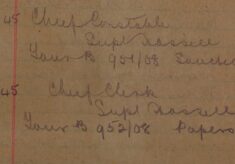 45 Chief Constable
Supt Hassell
Your B 951/08
45 Chief Clerk
Supt Hassell
Your B 952/08 Papers